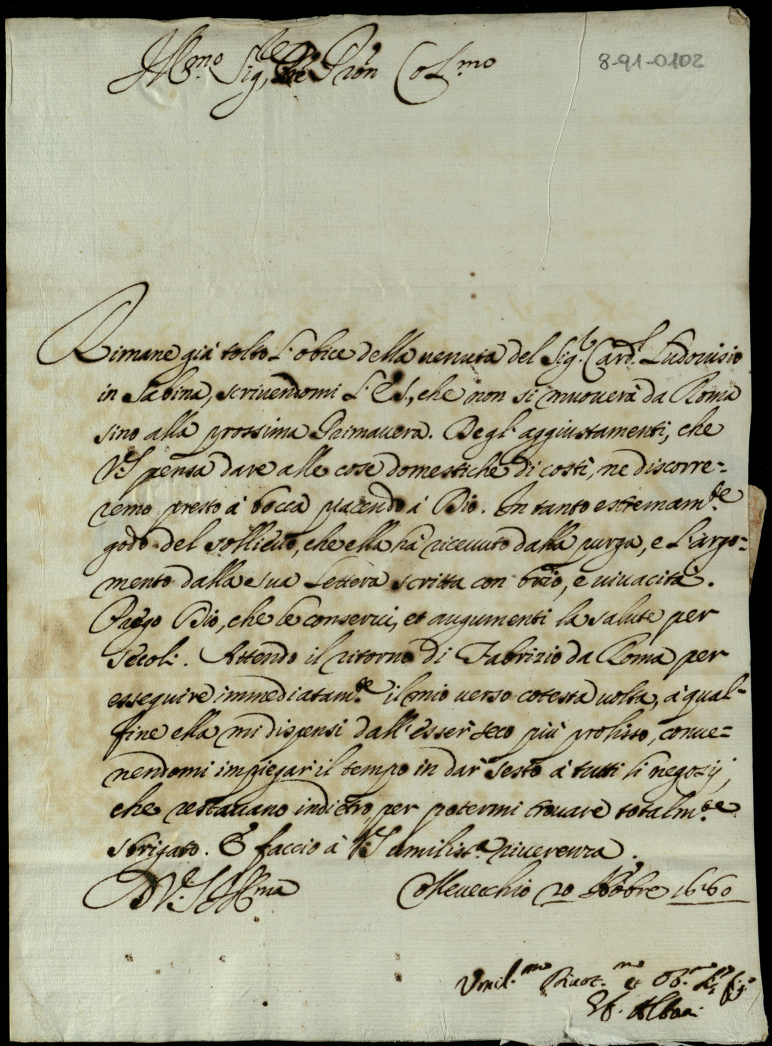 Ill.mo Sig.re Pron Col.mo
8-91-0102
Rimane già tolto l'obice della venuta del Sig.r Card.l Ludovisio
in Sabina, scrivendomi l'E.S., che non si muoverà da Roma
sino alla prossima Primavera. Degl'aggiustamenti, che
V.S. pensa dare alle cose domestiche di costì, ne discorre-
remo presto à bocca piacendo à Dio. In tanto estremam.te
godo del sollievo, che ella hà ricevuto dalla purga, e l'argo-
mento dalla sua lettera scritta con brio, e vivacità.
Prego Dio, che le conservi, et augumenti la salute per
secoli. Attendo il ritorno di Fabrizio da Roma per
esseguire immediatam.te il mio verso cotesta volta, à qual
fine ella mi dispensi dall'esser seco più prolisso, conve-
nendomi impiegar il tempo in dar sesto à tutti li negozij,
che restavano indietro per potermi trovare totalm.te
sbrigato. E faccio à V.S. umiliss.a riverenza.
D V.S. Ill.ma Collevecchio 20 1660
Umil.mo Divot.mo et Ob.mo
Albani